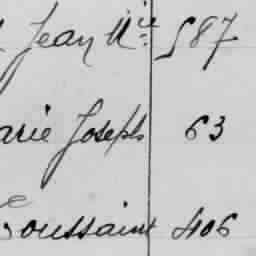 Jean N^ie 587
arie Joseph 63
oussaint 406